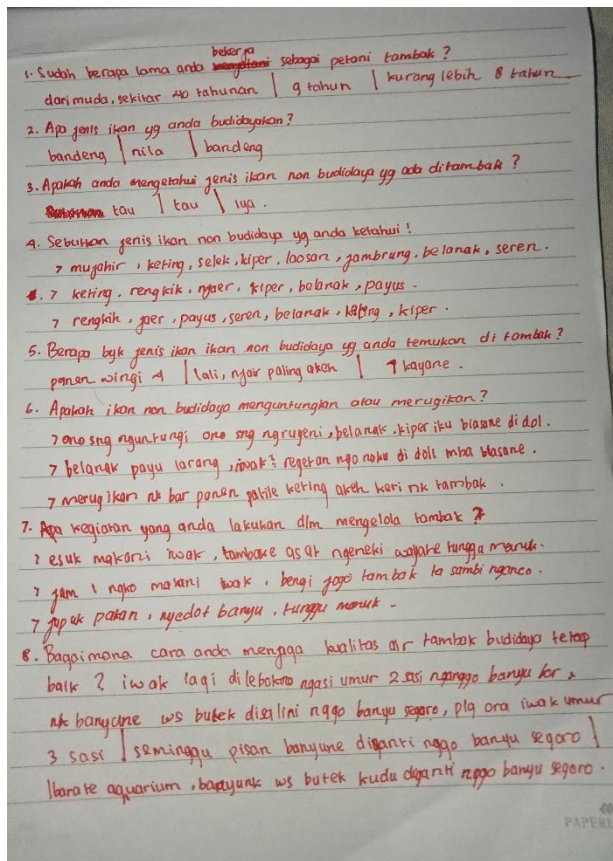 bekerja
1. Sudah berapa lama anda sebagai petani tambak ?
dari muda, sekitar 40 tahunan | 9 tahun | kurang lebih 8 tahun
2. Apa jenis ikan yg anda budidayakan?
bandeng | nila | bandeng
3. Apakah anda mengetahui jenis ikan non budidaya yg ada ditambak ?
tau | tau | iya .
4. Sebutkan jenis ikan non budidaya yg anda ketahui !
7 mujahir , keting, selek, kiper, laosan, jambrung, belanak, seren.
7 keting, rengkik, njaer, kiper, bolanak, payus .
7 rengkik, jaer, payus, seren, belanak, keting, kiper .
5. Berapa byk jenis ikan ikan non budidaya yg anda temukan di tambak ?
panen wingi 4 | lali, njair paling akeh | 7 kayane .
6. Apakah ikan non budidaya menguntungkan atau merugikan ?
7 ono sing nguntungi ono sing ngrugeni, belanak, kiper iku biasane di dol.
7 belanak payu larang, iwak² regetan ngo noku di doli mba biasane .
7 merugikan nk bar panen patile keting akeh keri nk tambak .
7. Apa kegiatan yang anda lakukan dlm mengelola tambak ?
7 esuk makani iwak, tambake asar ngeneki wayahe tunggu manuk.
7 jam 1 ngko makani iwak, bengi jogo tambak ta sambi nganco.
7 jupuk pakan, nyedot banyu, tunggu manuk -
8. Bagaimana cara anda menjaga kualitas air tambak budidaya tetap
baik ? iwak lagi dilebokno ngasi umur 2 sasi nganggo banyu bor,
nk banyune ws butek disalini nggo banyu segoro, plg ora iwak umur
3 sasi | seminggu pisan banyune diganti nggo banyu segoro |
Ibarate aquarium, banyune ws butek kudu diganti nggo banyu segoro .
PAPERL